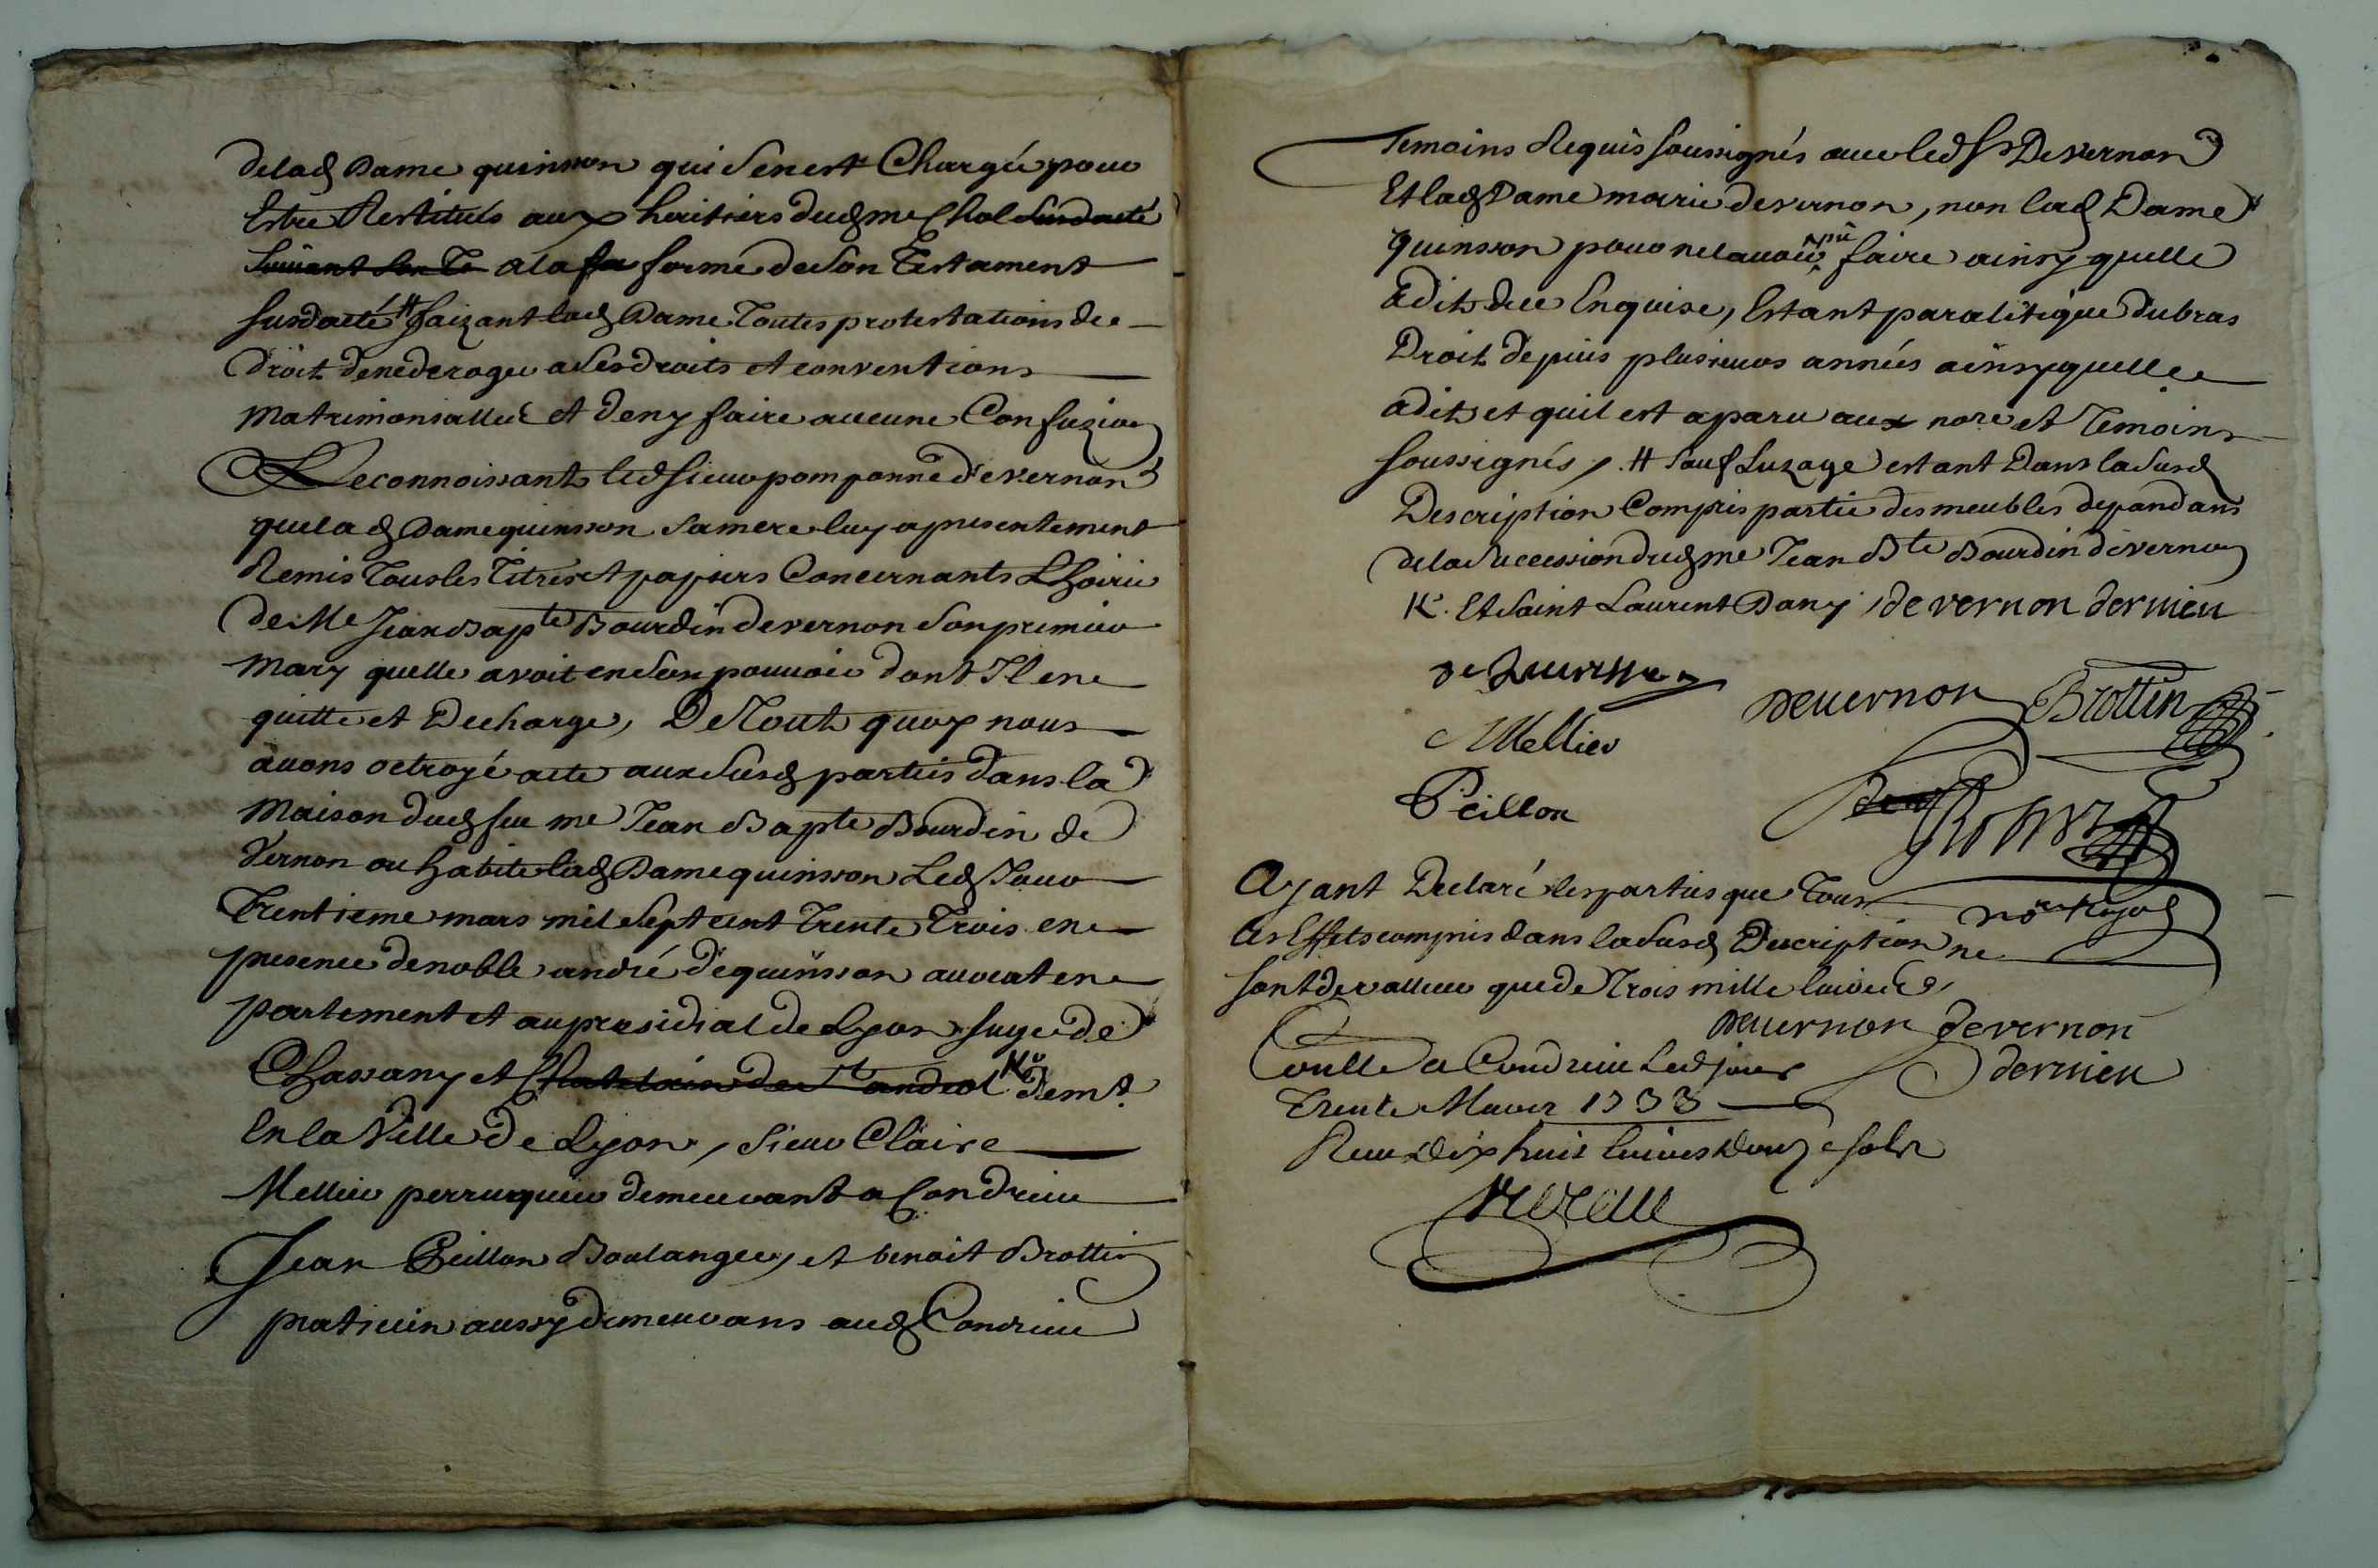 delad Dame quinsson qui s'en est Chargée pour
Estre Restitués aux heritiers dud me Chol susdatté
suivant son Te a la fo forme de son Testament
susdatté # faizant lad Dame Toutes protestations de
Droit de ne deroger a ses droits et conventions
matrimonialles et de ny faire aucune Confuzion
Reconnoissant led sieur pomponne de vernon
que lad Dame quinsson sa mere luy a presentement
Remis Tous les Titres et papiers Concernants Lhoirie
de Me Jean Bapte Bourdin de vernon son premier
mary quelle avoit en son pouvoir dont Il en
quitte et Decharge, De Tout quoy nous
avons octroyé acte aux susd parties dans la
maison dud feu me Jean Bapte Bourdin de
vernon ou habite lad Dame quinsson Led Jour
Trentieme mars mil sept cent Trente Trois en
presence de noble andré de quinsson avocat en
parlement et au presidial de Lyon juge de
Chassany et Chatelain de St andeol K demt
En la Ville de Lyon, sieur Claire
Mellier perruquier demeurant a Condrieu
Jean Peillon Boulanger, et benoit Brottin
praticien aussy demeurans aud Condrieu
Temoins Requis soussignés avec led Sr De vernon
Et lad Dame marie de vernon, non lad Dame
quinsson pour ne lavoir pû faire ainsy quelle
a dit de ce Enquise, Estant paralitique du bras
Droit depuis plusieurs années ainsy quelle
a dit et quil est aparu aux nore et Temoins
soussignés, # sauf Luzage estant Dans la susd
Description Compris partie des meubles depandans
de la succession dud me Jean Bte Bourdin de vernon
K. Et Saint Laurent Dany de vernon dernieu
de Quinsson
Devernon Brottin
Mellier
Peillon
Ayant Declaré les parties que Tous
nore Royal
les Effets compris dans la susd Description ne
sont de valleur que de Trois mille livres
Devernon de vernon
dernieu
Conllé a Condrieu Led jour
Trente Mars 1733
Receu Dix huit livres Douze sols